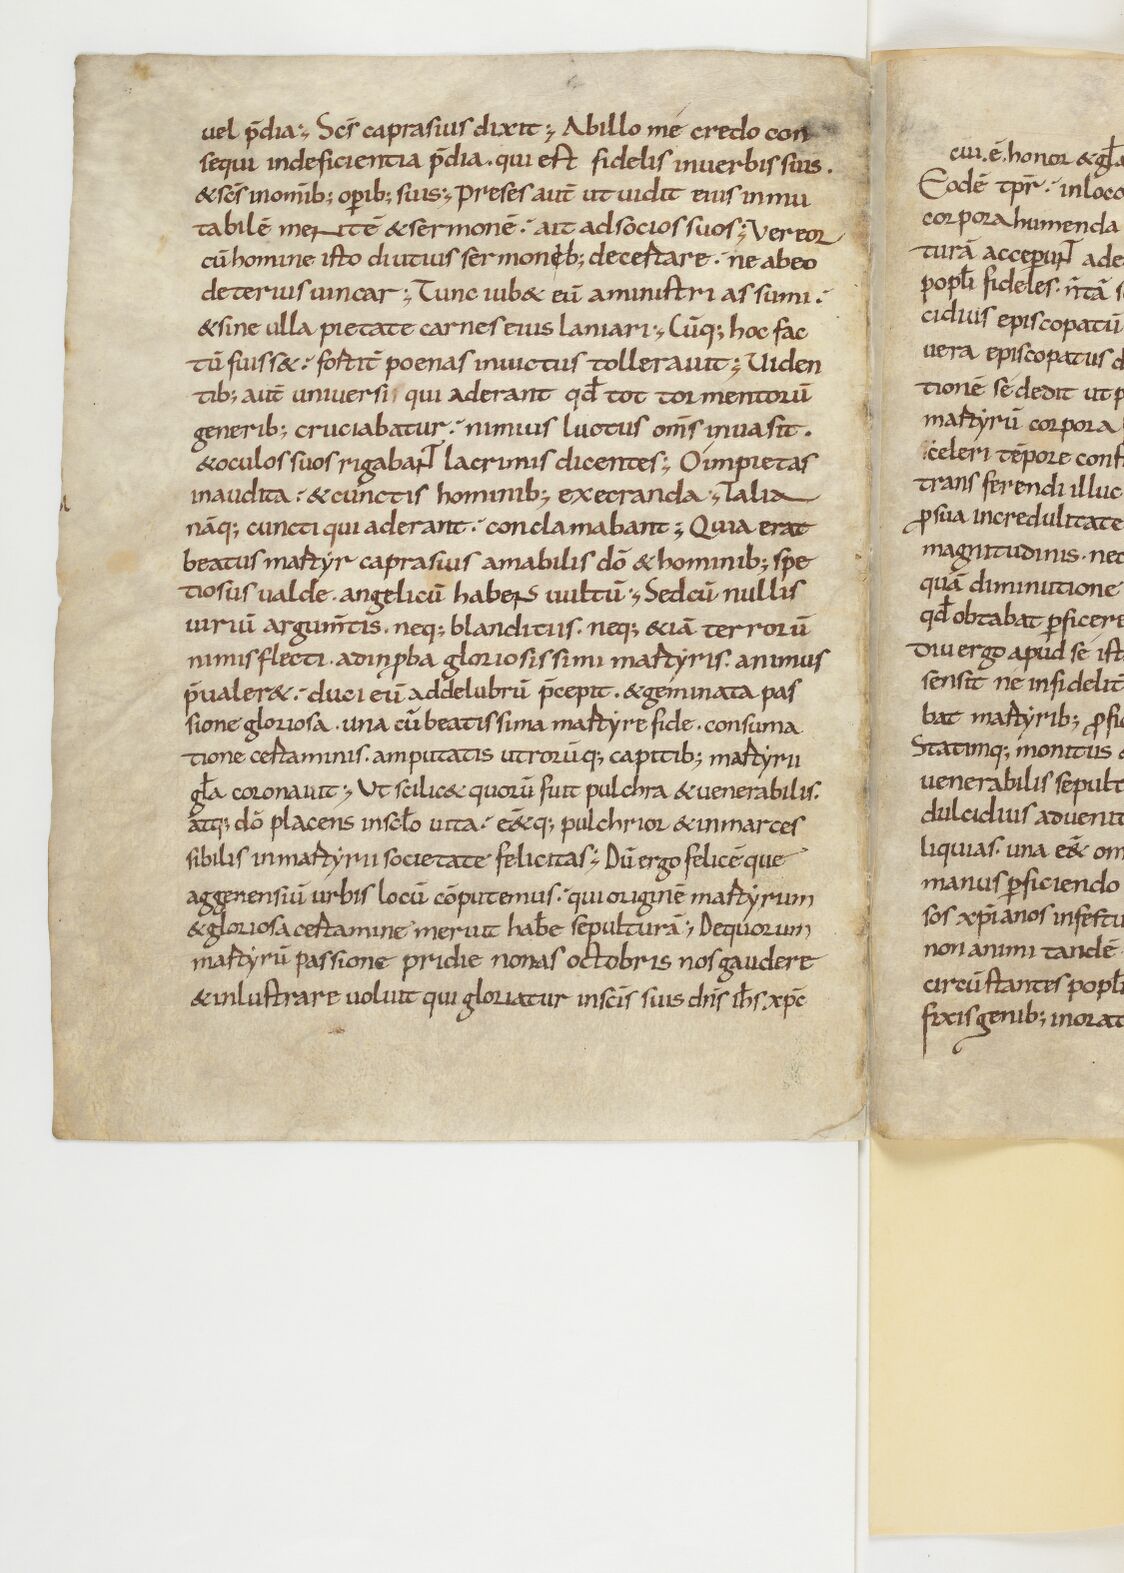 uel p̄dia:, Scs̄ caprasius dixit:, Ab illo me credo con
sequi indeficientia p̄dia. qui est fidelis in uerbis suis.
& scs̄ in omīb; operib; suis:, Preses aut̄ ut uidit eius inmu
tabilē mentē & sermonē: ait ad socios suos:, Vereor
cū homine isto diutius sermonib; decertare. ne abeo
deterius uincar:, Tunc iub& eū a ministri assumi:
& sine ulla pietate carnes eius laniari:, Cūq; hoc fac
tū fuiss&: fortit̄ poenas inuictus tollerauit:, Uiden
tib; aut̄ uniuersi qui aderant qđ tot tormentorū
generib; cruciabatur: nimius luctus om̄s inuasit.
& oculos suos rigabant lacrimis dicentes:, O impietas
inaudita: & cunctis hominib; execranda:, Talia
nāq; cuncti qui aderant: conclamabant:, Quia erat
beatus martyr caprasius amabilis dō & hominib; spe
tiosus ualde. angelicū habens uultū:, Sed cū nullis
uiriū argum̄tis. neq; blanditiis. neq; &iā terrorū
nimis flecti. ad inproba gloriosissimi martyris. animus
p̄ualer&: duci eū ad delubrū p̄cepit. & geminata pas
sione gloriosa. una cū beatissima martyre fide. consuma
tione certaminis. amputatis utrorūq; capitib; martyrii
gła coronauit:, Ut scilic& quorū fuit pulchra & uenerabilis.
atq; dō placens in sc̄lo uita: ē&q; pulchrior & inmarces
sibilis in martyrii societate felicitas:, Dū ergo felicē que
aggenensiū urbis locū cōputemus: qui originē martyrum
& gloriosa certamine meruit habe sepulturā:, De quorum
martyrū passione pridie nonas octobris nos gaudere
& inlustrare uoluit qui gloriatur in scīs suis dn̄s ih̄s xp̄c
cui. ē. honor & gła
Eodē tp̄r: in loco
corpora humenda
turā acceper̄ ade
popłi fideles.
ciduis episcopatū
uera episcopatus d
tionē se dedit ut p
martyrū corpora
celeri tēpore conf
transferendi illuc
ꝓ sua incredulitate
magnitudinis. nec
quā diminutione
qđ obtabat ꝑficere
Diu ergo apud se ist
sensit ne infidelit
bat martyrib; ꝓfic
Statimq; monitus
uenerabilis sepult
dulcidius aduenit
liquias. una ē& om
manus ꝑficiendo
sos xp̄ianos infestu
non animi tandē
circūstantes popłi
fixis genib; in orat